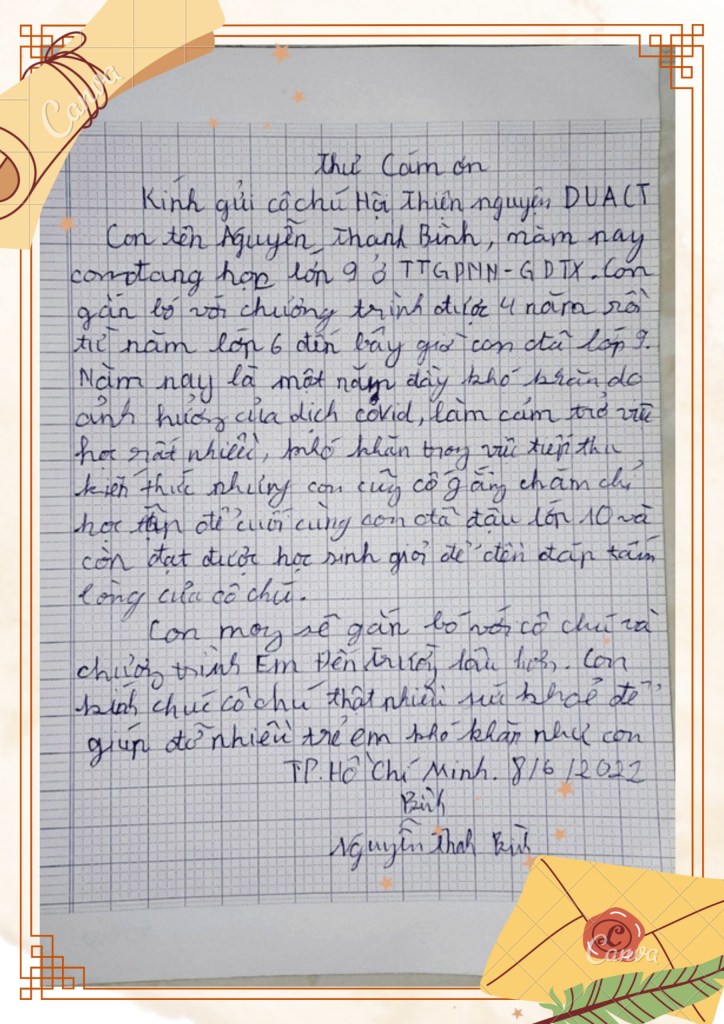 Canva
Thư Cám ơn
Kính gửi cô chú Hội Thiện nguyện DUACT
Con tên Nguyễn Thanh Bình, năm nay
con đang học lớp 9 ở TTGDNN-GDTX. Con
gắn bó với chương trình được 4 năm rồi
từ năm lớp 6 đến bây giờ con đã lớp 9.
Năm nay là một năm đầy khó khăn do
ảnh hưởng của dịch covid, làm cảm trở việc
học rất nhiều, khó khăn trong việc tiếp thu
kiến thức nhưng con cũng cố gắng chăm chỉ
học tập để cuối cùng con đã đậu lớp 10 và
còn đạt được học sinh giỏi để đền đáp tấm
lòng của cô chú.
Con mong sẽ gắn bó với cô chú và
chương trình Em Đến Trường lâu hơn. Con
kính chúc cô chú thật nhiều sức khoẻ để
giúp đỡ nhiều trẻ em khó khăn như con
TP. Hồ Chí Minh. 8/6/2022
Bình
Nguyễn Thanh Bình
Canva